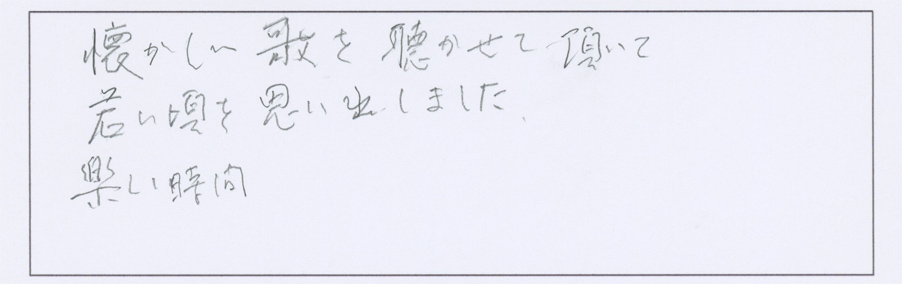 懐かしい歌を聴かせて頂いて
若い頃を思い出しました、
楽しい時間